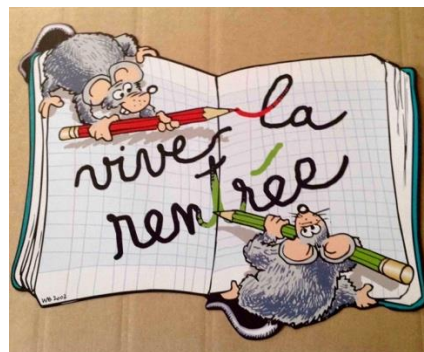 vive la
rentrée
WB 2002